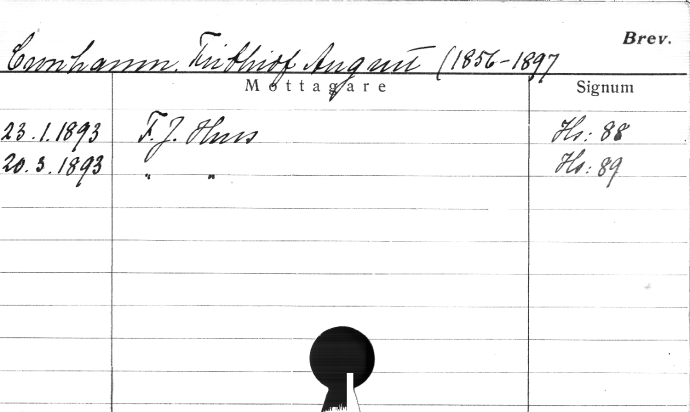 Brev.
Cronhamn, Frithiof August (1856-1897
Mottagare Signum
23.1.1893 F. J. Huss Hs: 88
20.3.1893 " " Hs: 89